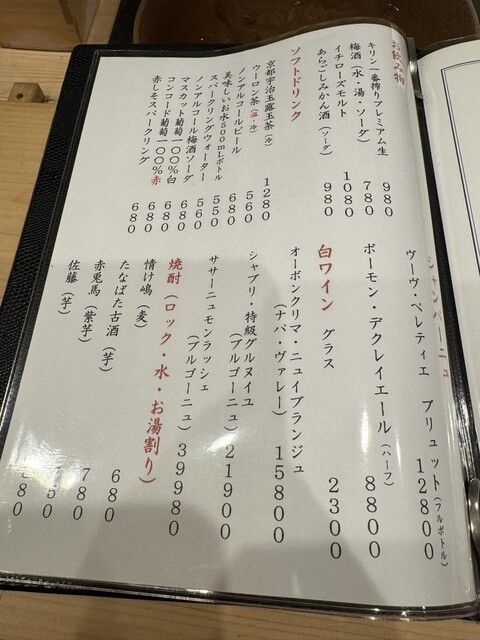 お飲み物
キリン一番搾りプレミアム生 980
梅酒（水・湯・ソーダ） 780
イチローズモルト 1080
あらごしみかん酒（ソーダ） 980
ソフトドリンク
京都宇治玉露玉茶（冷） 1280
ウーロン茶（温・冷） 560
ノンアルコールビール 680
美味しいお水500mLボトル 550
スパークリングウォーター 560
ノンアルコール梅酒ソーダ 680
マスカット葡萄一〇〇％白 680
コンコード葡萄一〇〇％赤 680
赤しそスパークリング 680
シャンパーニュ
ヴーヴ・ペレティエ ブリュット（フルボトル） 12800
ボーモン・デクレイエール（ハーフ） 8800
白ワイン グラス 2300
オーボンクリマ・ニュイブランジュ
（ナパ・ヴァレー） 15800
シャブリ・特級グルヌイユ
（ブルゴーニュ） 21900
ササーニュモンラッシェ
（ブルゴーニュ） 39980
焼酎（ロック・水・お湯割り）
情け嶋（麦） 680
たなばた古酒（芋） 780
赤兎馬（紫芋）
佐藤（芋）